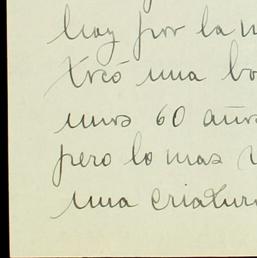 hay por la
treó una bo
unos 60 años
pero lo mas
una criatur